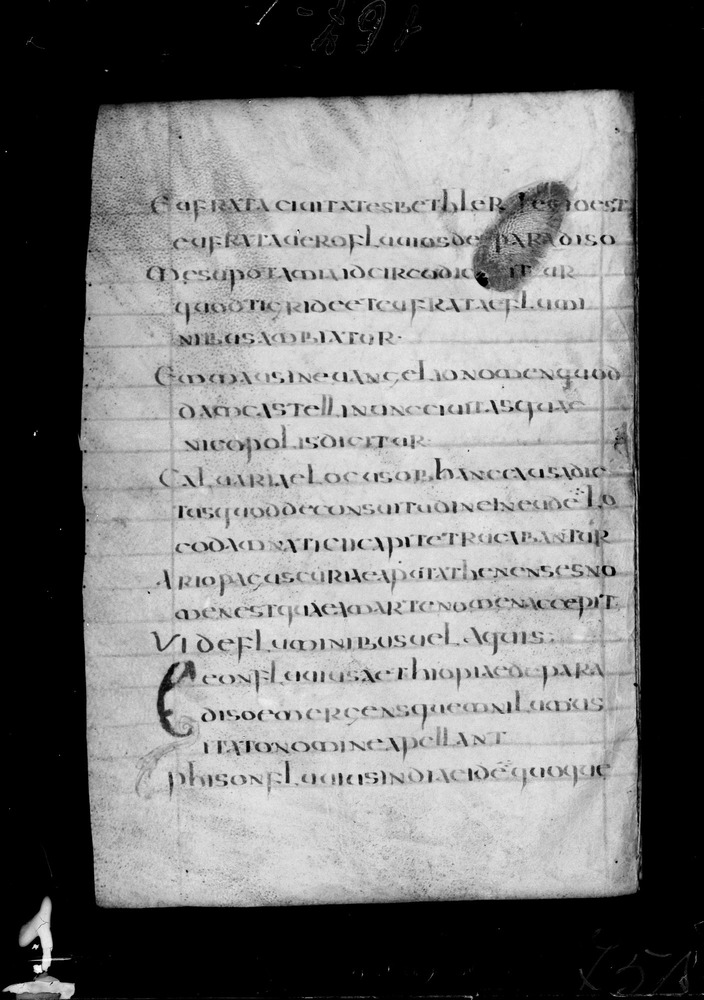 EUFRATA CIUITATES BETHLER REGIO EST
EUFRATA UERO FLUUIUS DE PARADISO
MESUPOTAMIA IDCIRCO DICITUR
QUOD TIGRIDE ET EUFRATAE FLUMI
NIBUS AMBIATUR·
EMMAUS IN EUANGELIO NOMEN QUOD
DAM CASTELLI NUNC CIUITAS QUAE
NICOPOLIS DICITUR·
CALUARIAE LOCUS OB HANC CAUSA DIC
TUS QUOD DE CONSUITUDINE IN EUDE LO
CO DAMNATI CAPITE TRUCABANTUR
ARIOPAGUS CURIAE APUT ATHENENSES NO
MEN EST QUAE A MARTE NOMEN ACCEPIT
VI DE FLUMINIBUS UEL AQUIS:
GEON FLUUIUS AETHIOPIAE DE PARA
DISO EMERGENS QUEM NILUM US
ITATO NOMINE APELLANT
PHISON FLUUIUS INDIAE IDE QUOQUE